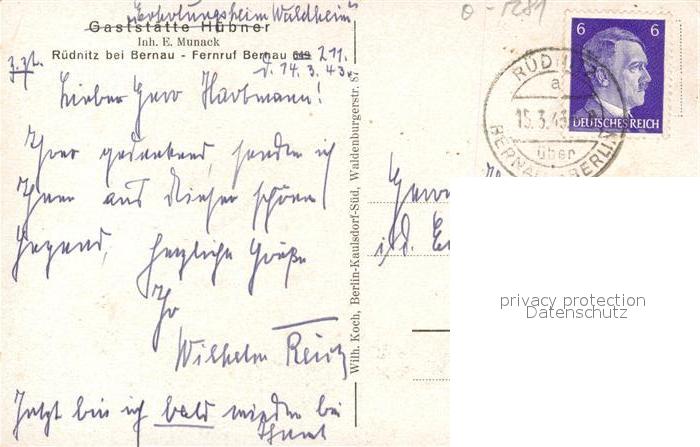 "Erholungsheim Waldheim"
Gaststätte Hübner
Inh. E. Munack
Rüdnitz bei Bernau - Fernruf Bernau 649 211.
z.Zt.
d. 14.3.43.
Lieber Herr Hartmann!
Ihrer gedenkend, sende ich
Ihnen aus dieser schönen
Gegend, herzliche Grüße
Ihr
Wilhelm Reitz
Jetzt bin ich bald wieder bei
Ihnen
Wilh. Koch, Berlin-Kaulsdorf-Süd, Waldenburgerstr. 87
O-1281
6 6
DEUTSCHES REICH
RÜDNITZ
a
15.3.43
über
BERNAU (BERLIN)
Herrn
i./d.
privacy protection
Datenschutz